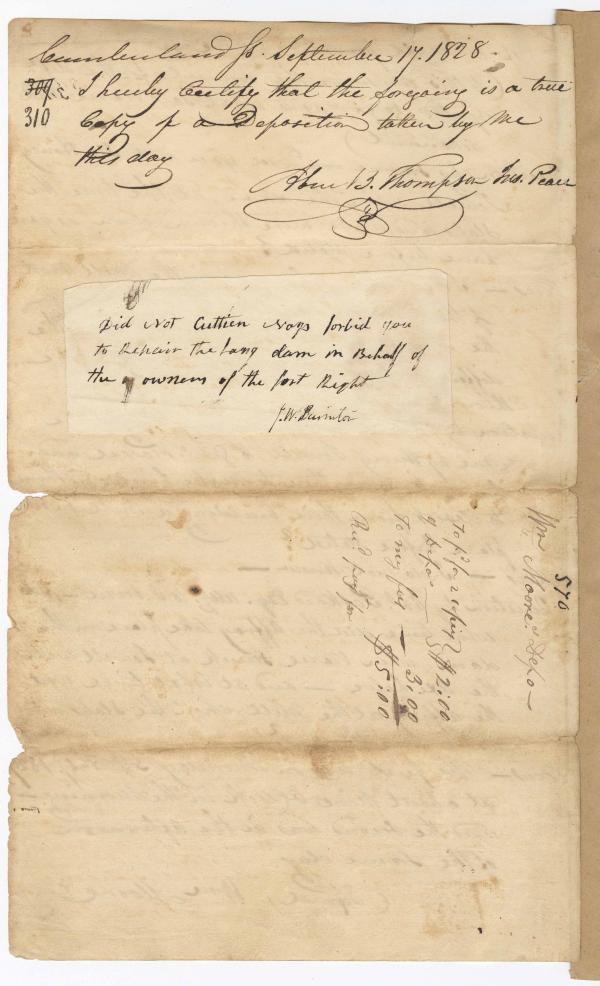 Cumberland Ss. September 17. 1828.
I hereby Certify that the foregoing is a true
310
Copy of a Deposition taken by me
this day
Thompson Jus. Peace
Did Not Cuttien Noys forbid you
to Repair the Long dam in Behalf of
the owners of the fort Right
J. W.
570
Wm Moore's Depo—
To pd for 2 copies
of Depos — $2:00
To my fee — 3:00
$5:00
Recd pay for